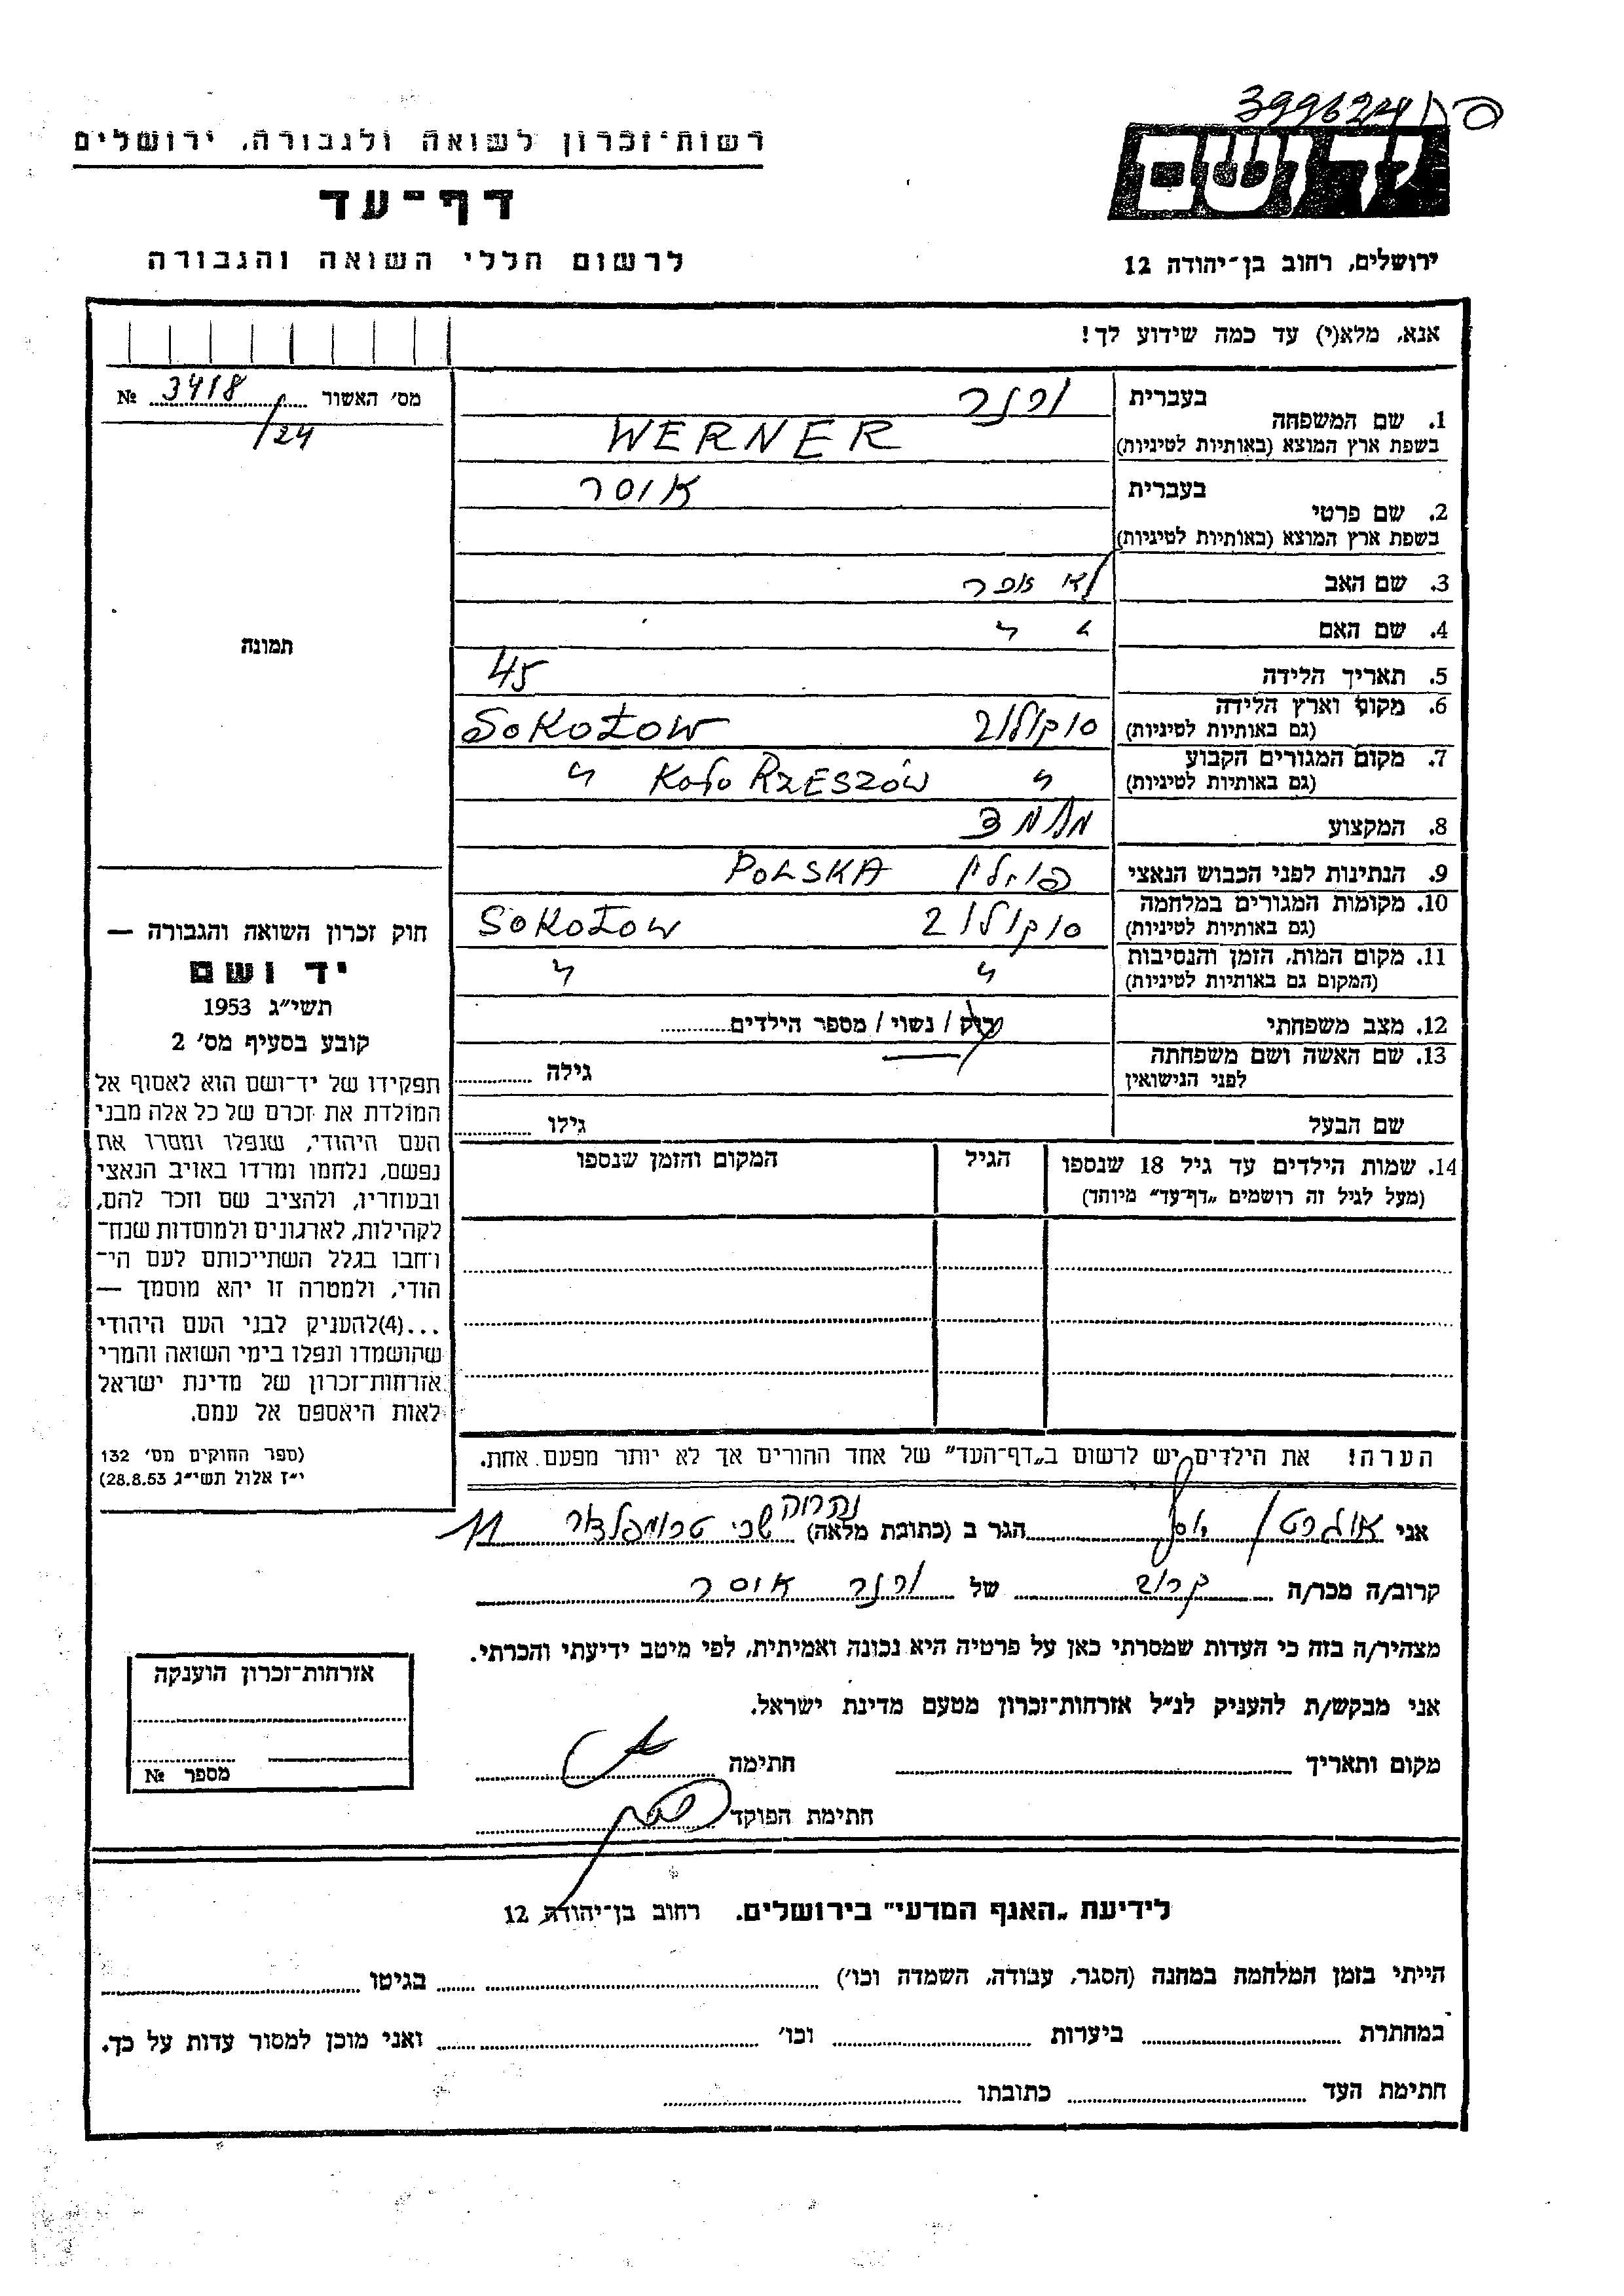 399624
רשות-זכרון לשואה ולגבורה, ירושלים
דף-עד
לרשום חללי השואה והגבורה
ירושלים, רחוב בן-יהודה 12
אנא, מלא(י) עד כמה שידוע לך!
מס׳ האשור 3418/24 №
בעברית ורנר
1. שם המשפחה
בשפת ארץ המוצא (באותיות לטיניות) WERNER
בעברית אוסר
2. שם פרטי
בשפת ארץ המוצא (באותיות לטיניות)
3. שם האב
4. שם האם
5. תאריך הלידה 45
6. מקום וארץ הלידה סוקולוב SOKOŁOW
(גם באותיות לטיניות)
7. מקום המגורים הקבוע " KOŁO RZESZÓW "
(גם באותיות לטיניות)
8. המקצוע מלמד
9. הנתינות לפני הכבוש הנאצי פולין POLSKA
10. מקומות המגורים במלחמה סוקולוב SOKOŁOW
(גם באותיות לטיניות)
11. מקום המות, הזמן והנסיבות " "
(המקום גם באותיות לטיניות)
12. מצב משפחתי רוק / נשוי / מספר הילדים
13. שם האשה ושם משפחתה גילה
לפני הנישואין
שם הבעל גילו
14. שמות הילדים עד גיל 18 שנספו הגיל המקום והזמן שנספו
(מעל לגיל זה רושמים „דף-עד" מיוחד)
תמונה
חוק זכרון השואה והגבורה —
יד ושם
תשי״ג 1953
קובע בסעיף מס׳ 2
תפקידו של יד-ושם הוא לאסוף אל
המולדת את זכרם של כל אלה מבני
העם היהודי, שנפלו ומסרו את
נפשם, נלחמו ומרדו באויב הנאצי
ובעוזריו, ולהציב שם וזכר להם,
לקהילות, לארגונים ולמוסדות שנח-
רחבו בגלל השתייכותם לעם הי-
הודי, ולמטרה זו יהא מוסמך —
...(4)להעניק לבני העם היהודי
שהושמדו ונפלו בימי השואה והמרי
אזרחות-זכרון של מדינת ישראל
לאות היאספם אל עמם.
(ספר החוקים מס׳ 132
י״ז אלול תשי״ג 28.8.53)
הערה! את הילדים יש לרשום ב„דף-העד" של אחד ההורים אך לא יותר מפעם אחת.
אני הגר ב (כתובת מלאה) טרומפלדור 11
קרוב/ה מכר/ה קרוב של ורנר אוסר
מצהיר/ה בזה כי העדות שמסרתי כאן על פרטיה היא נכונה ואמיתית, לפי מיטב ידיעתי והכרתי.
אני מבקש/ת להעניק לנ״ל אזרחות-זכרון מטעם מדינת ישראל.
מקום ותאריך חתימה
חתימת הפוקד
אזרחות-זכרון הוענקה
מספר №
לידיעת „האגף המדעי" בירושלים. רחוב בן-יהודה 12
הייתי בזמן המלחמה במחנה (הסגר, עבודה, השמדה וכו׳) בגיטו
במחתרת ביערות וכו׳ ואני מוכן למסור עדות על כך.
חתימת העד כתובתו